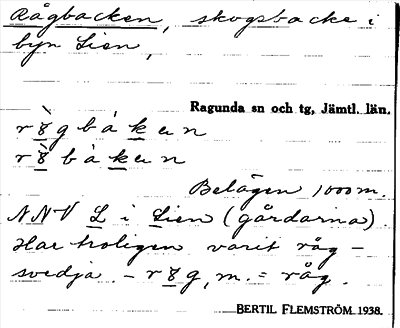 Rågbacken, skogsbacke i
byn Lien,
Ragunda sn och tg, Jämtl. län.
Belägen 1000 m.
NNV L i Lien (gårdarna).
Har troligen varit råg-
svedja. – r g, m. = råg.
BERTIL FLEMSTRÖM 1938.